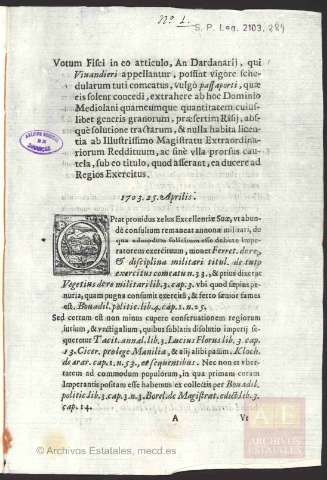 Nº 1.
S. P. Leg. 2103, 289
Votum Fisci in eo articulo, An Dardanarij, qui
Viuandieri appellantur, possint vigore sche-
dularum tuti comeatus, vulgò passaporti, quæ
eis solent concedi, extrahere ab hoc Dominio
Mediolani quamcumque quantitatem cuius-
libet generis granorum, præsertim Risi, abs-
què solutione tractarum, & nulla habita licen-
tia ab Illustrissimo Magistratu Extraordina-
riorum Reddituum, ac sinè vlla prorsus cau-
tela, sub eo titulo, quod asserat, ea ducere ad
Regios Exercitus.
1703. 25. Aprilis.
Prat prouidus zelus Excellentiæ Suæ, vt abun-
dè consultum remaneat annonæ militari, de
qua admodum sollicitum esse debere Impe-
ratorem exercituum, monet Ferret. de re,
& disciplina militari titul. de tuto
exercitus comeatu n.33., & priùs dixerat
Vegetius de re militari lib.3. cap.3. vbi quod sæpius pe-
nuria, quam pugna consumit exercitũ, & ferro sæuior fames
est. Bonadil. politic. lib.4. cap.1. n.25.
Sed certum est non minùs cupere conseruationem regiorum
iurium, & vectigalium, quibus sublatis disolutio imperij se-
queretur Tacit. annal. lib.3. Lucius Florus lib.3. cap.
13. Cicer. pro lege Manilia, & alij alibi passim. Kloch.
de ærar. cap.1. n.53., & sequentibus. Nec non & vber-
tatem ad commodum populorum, in qua primam curam
Imperantis positam esse habemus ex collectis per Bonadil.
politic. lib.3. cap.3. n.3. Borel. de Magistrat. edict. lib.3.
cap.14.
A Vt
ARCHIVOS ESTATALES
© Archivos Estatales, mecd.es